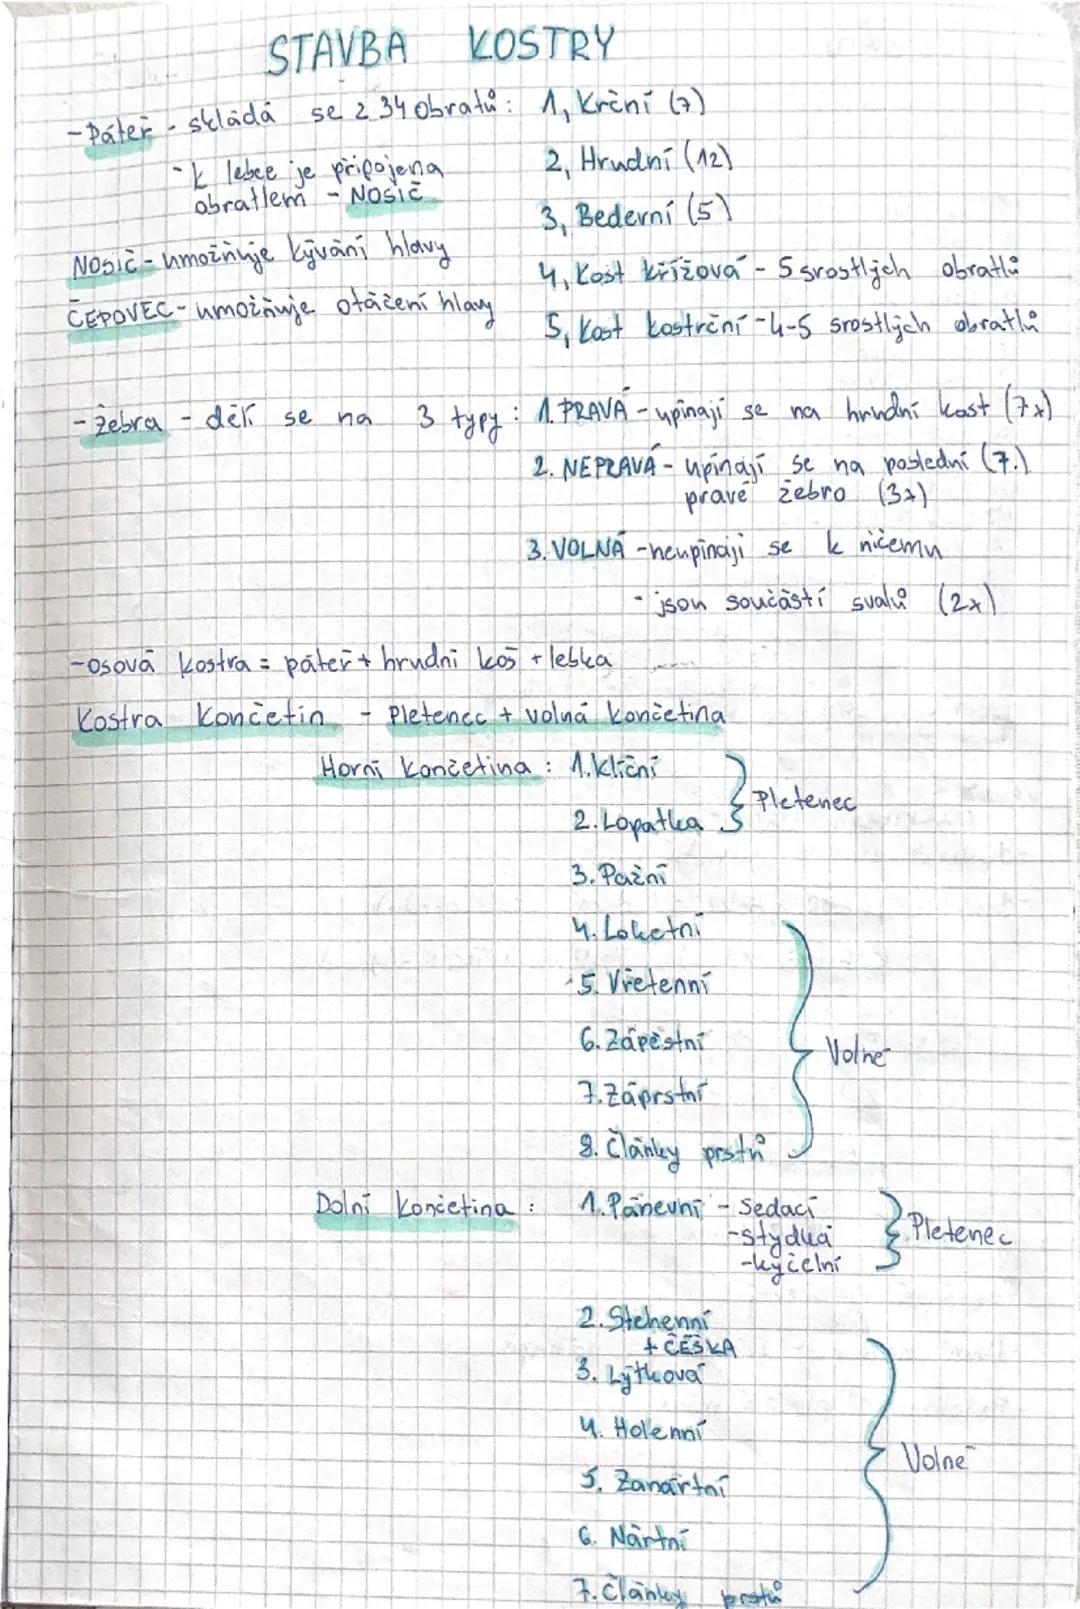 STAVBA KOSTRY
-Páteř - skládá se z 34 obratů: 1, Krční (7)
-k lebce je připojena
obratlem - NOSIČ
2, Hrudní (12)
3, Bederní (5)
NOSIČ - umožňuje kývání hlavy
4, Kost křížová - 5 srostlých obratlů
ČEPOVEC - umožňuje otáčení hlavy
5, Kost kostrční - 4-5 srostlých obratlů
- žebra - dělí se na 3 typy: 1. PRAVÁ - upínají se na hrudní kost (7x)
2. NEPRAVÁ - upínají se na poslední (7.)
pravé žebro (3x)
3. VOLNÁ - neupínají se k ničemu
- jsou součástí svalů (2x)
-osová kostra = páteř + hrudní koš + lebka
Kostra končetin - Pletenec + volná končetina
Horní končetina: 1. klíční
2. Lopatka
Pletenec
3. Pažní
4. Loketní
5. Vřetenní
6. Zápěstní
Volné
7. Záprstní
8. Články prstů
Dolní končetina: 1. Pánevní - Sedací
-stydká
-kyčelní
Pletenec
2. Stehenní
+ ČÉŠKA
3. Lýtková
4. Holenní
Volné
5. Zanártní
6. Nártní
7. Články prstů